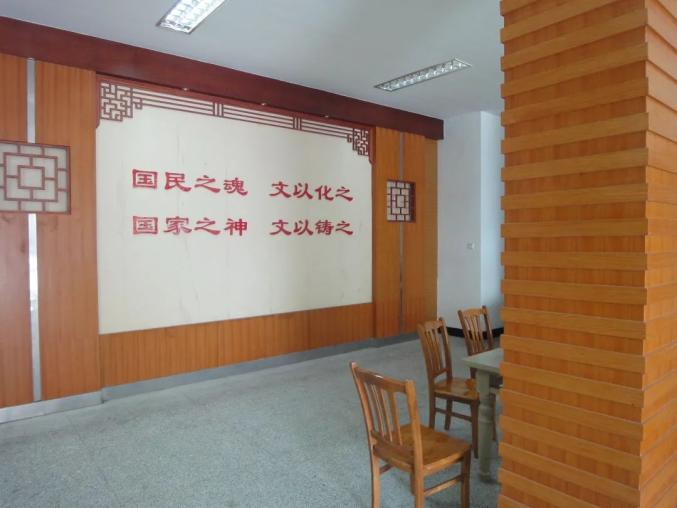 国民之魂 文以化之
国家之神 文以铸之